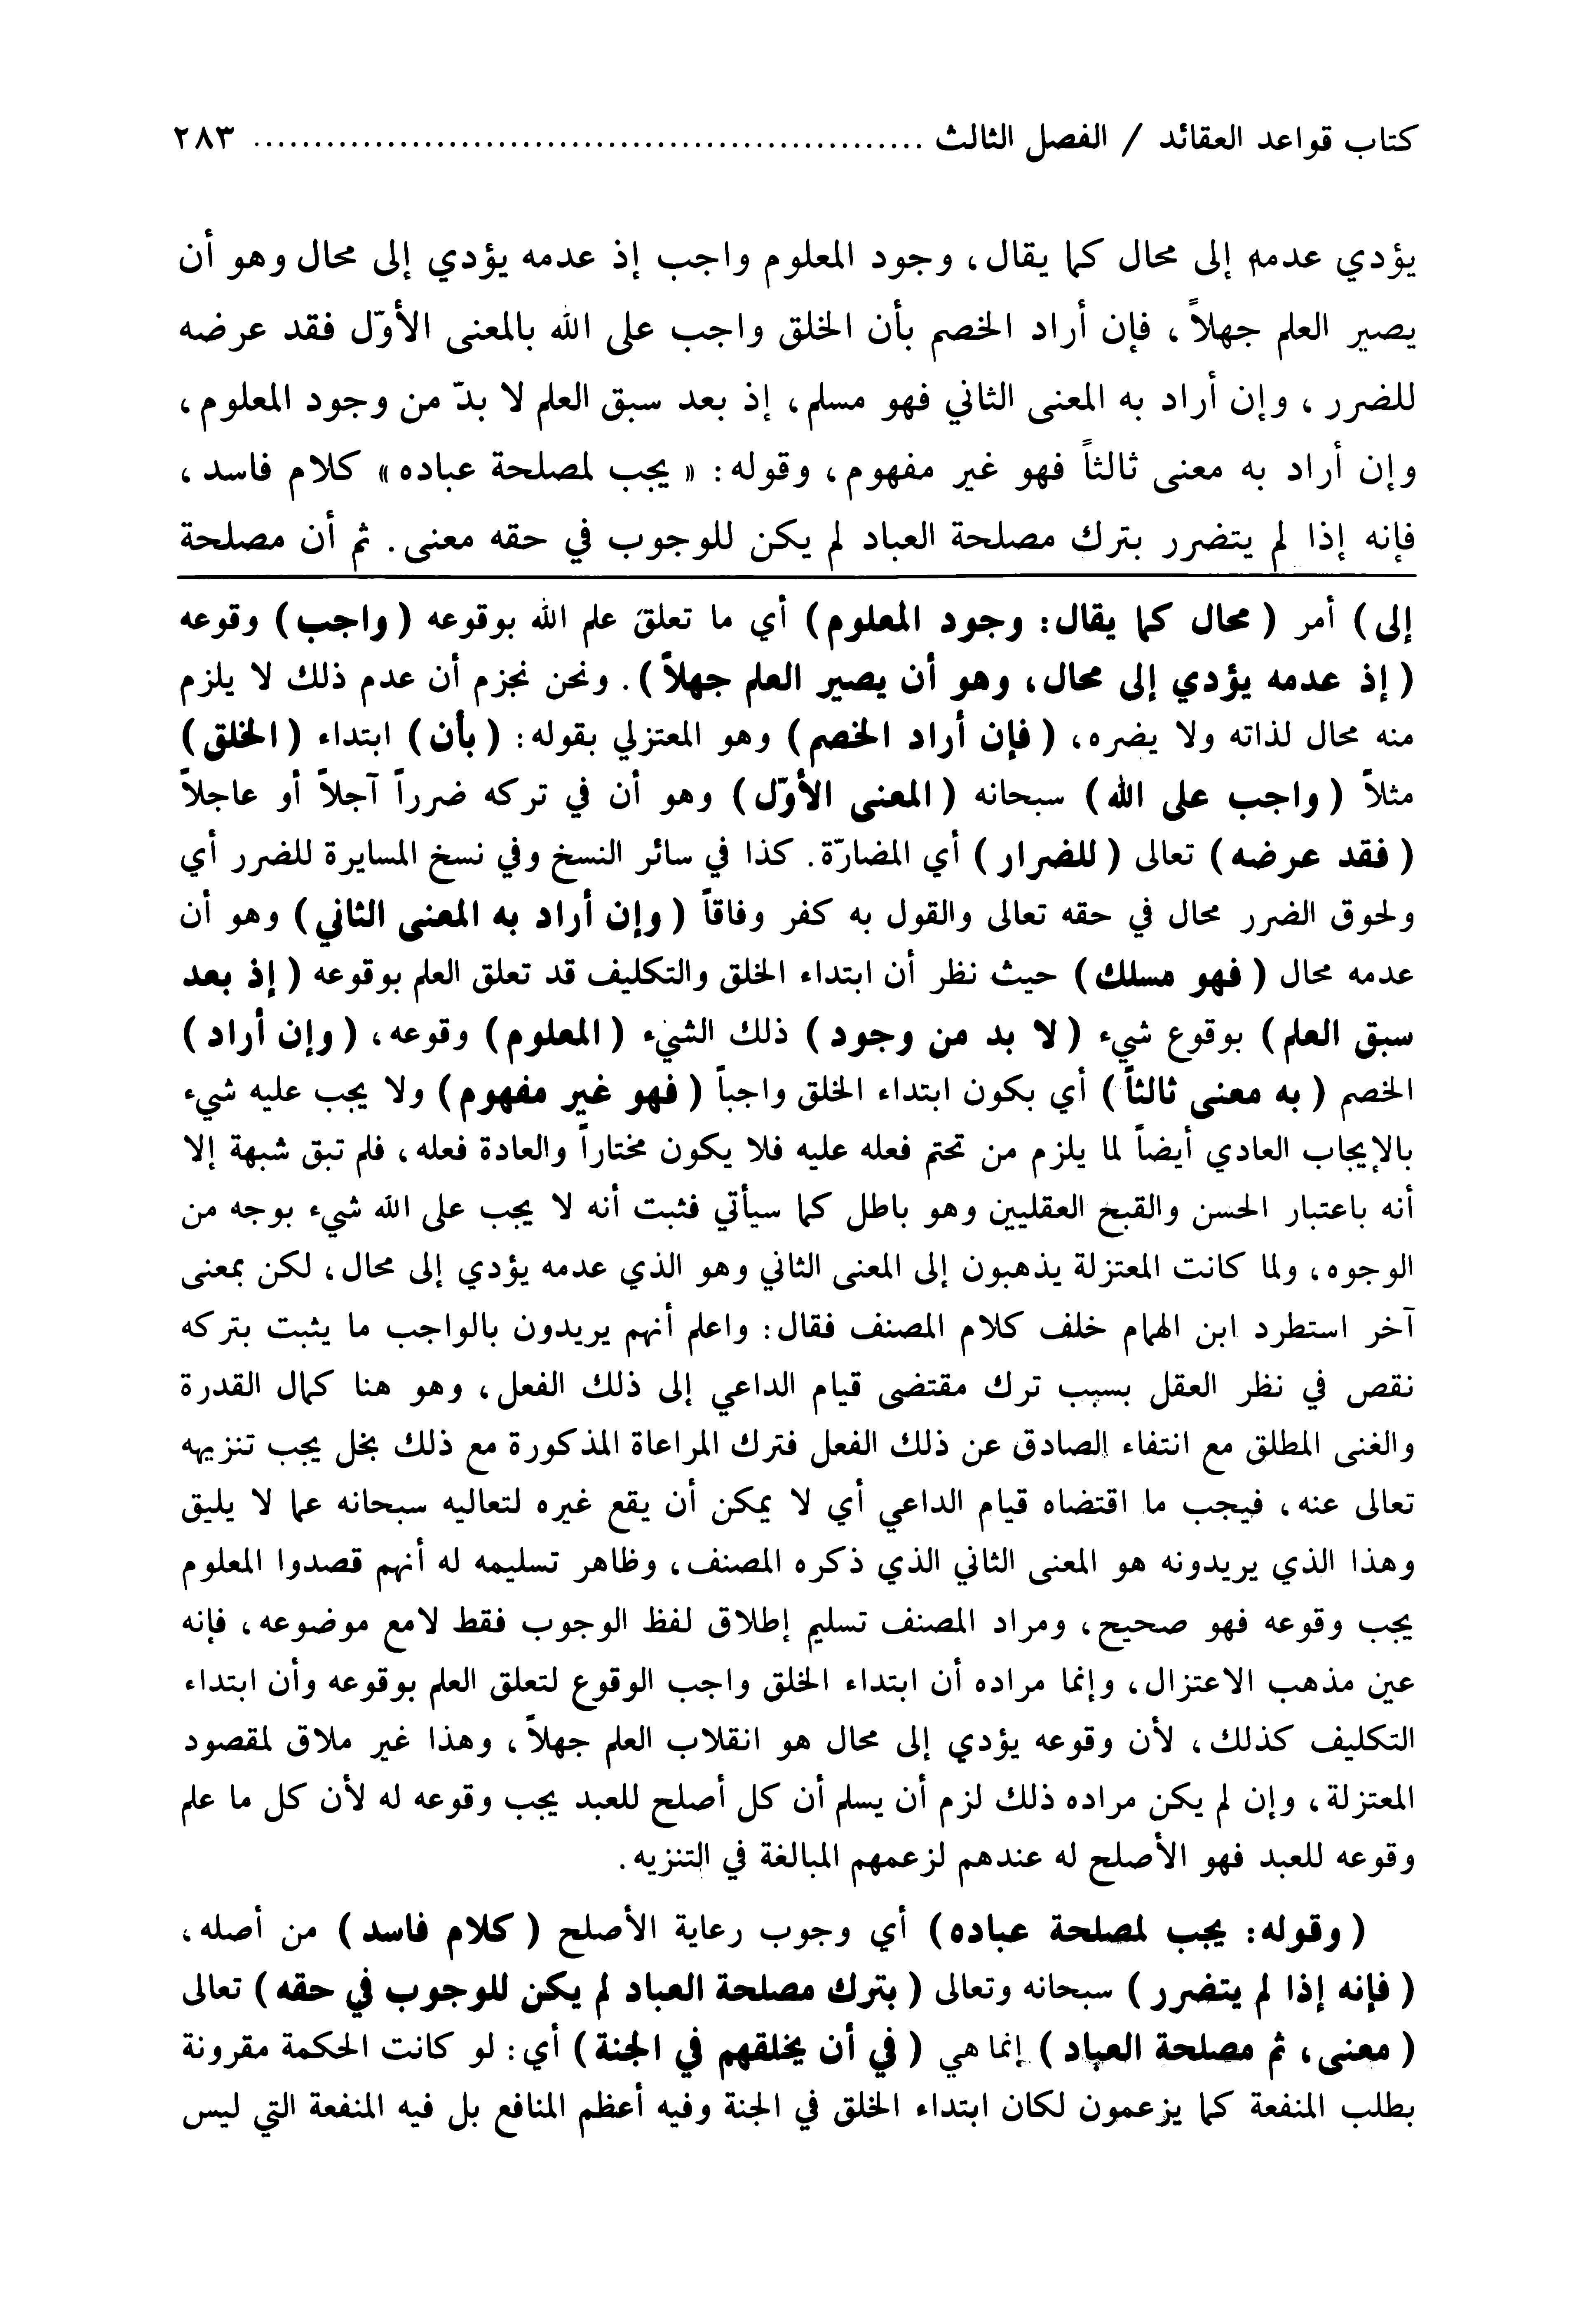 كتاب قواعد العقائد / الفصل الثالث ........................................................ ٢٨٣
يؤدي عدمه إلى محال كما يقال، وجود المعلوم واجب إذ عدمه يؤدي إلى محال وهو أن
يصير العلم جهلاً، فإن أراد الخصم بأن الخلق واجب على الله بالمعنى الأوّل فقد عرضه
للضرر، وإن أراد به المعنى الثاني فهو مسلم، إذ بعد سبق العلم لا بدّ من وجود المعلوم،
وإن أراد به معنى ثالثاً فهو غير مفهوم، وقوله: « يجب لمصلحة عباده » كلام فاسد،
فإنه إذا لم يتضرر بترك مصلحة العباد لم يكن للوجوب في حقه معنى. ثم أن مصلحة
إلى) أمر (محال كما يقال: وجود المعلوم) أي ما تعلق علم الله بوقوعه (واجب) وقوعه
(إذ عدمه يؤدي إلى محال، وهو أن يصير العلم جهلاً). ونحن نجزم أن عدم ذلك لا يلزم
منه محال لذاته ولا يضره، (فإن أراد الخصم) وهو المعتزلي بقوله: (بأن) ابتداء (الخلق)
مثلاً (واجب على الله) سبحانه (المعنى الأوّل) وهو أن في تركه ضرراً آجلاً أو عاجلاً
(فقد عرضه) تعالى (للضرار) أي المضارّة. كذا في سائر النسخ وفي نسخ المسايرة للضرر أي
ولحوق الضرر محال في حقه تعالى والقول به كفر وفاقاً (وإن أراد به المعنى الثاني) وهو أن
عدمه محال (فهو مسلك) حيث نظر أن ابتداء الخلق والتكليف قد تعلق العلم بوقوعه (إذ بعد
سبق العلم) بوقوع شيء (لا بد من وجود) ذلك الشيء (المعلوم) وقوعه، (وإن أراد)
الخصم (به معنى ثالثاً) أي بكون ابتداء الخلق واجباً (فهو غير مفهوم) ولا يجب عليه شيء
بالإيجاب العادي أيضاً لما يلزم من تحتم فعله عليه فلا يكون مختاراً والعادة فعله، فلم تبق شبهة إلا
أنه باعتبار الحسن والقبح العقليين وهو باطل كما سيأتي فثبت أنه لا يجب على الله شيء بوجه من
الوجوه، ولما كانت المعتزلة يذهبون إلى المعنى الثاني وهو الذي عدمه يؤدي إلى محال، لكن بمعنى
آخر استطرد ابن الهمام خلف كلام المصنف فقال: واعلم أنهم يريدون بالواجب ما يثبت بتركه
نقص في نظر العقل بسبب ترك مقتضى قيام الداعي إلى ذلك الفعل، وهو هنا كمال القدرة
والغنى المطلق مع انتفاء الصادق عن ذلك الفعل فترك المراعاة المذكورة مع ذلك بخل يجب تنزيهه
تعالى عنه، فيجب ما اقتضاه قيام الداعي أي لا يمكن أن يقع غيره لتعاليه سبحانه عما لا يليق
وهذا الذي يريدونه هو المعنى الثاني الذي ذكره المصنف، وظاهر تسليمه له أنهم قصدوا المعلوم
يجب وقوعه فهو صحيح، ومراد المصنف تسليم إطلاق لفظ الوجوب فقط لامع موضوعه، فإنه
عين مذهب الاعتزال، وإنما مراده أن ابتداء الخلق واجب الوقوع لتعلق العلم بوقوعه وأن ابتداء
التكليف كذلك، لأن وقوعه يؤدي إلى محال هو انقلاب العلم جهلاً، وهذا غير ملاق لمقصود
المعتزلة، وإن لم يكن مراده ذلك لزم أن يسلم أن كل أصلح للعبد يجب وقوعه له لأن كل ما علم
وقوعه للعبد فهو الأصلح له عندهم لزعمهم المبالغة في التنزيه.
(وقوله: يجب لمصلحة عباده) أي وجوب رعاية الأصلح (كلام فاسد) من أصله،
(فإنه إذا لم يتضرر) سبحانه وتعالى (بترك مصلحة العباد لم يكن للوجوب في حقه) تعالى
(معنى، ثم مصلحة العباد) إنما هي (في أن يخلقهم في الجنة) أي: لو كانت الحكمة مقرونة
بطلب المنفعة كما يزعمون لكان ابتداء الخلق في الجنة وفيه أعظم المنافع بل فيه المنفعة التي ليس